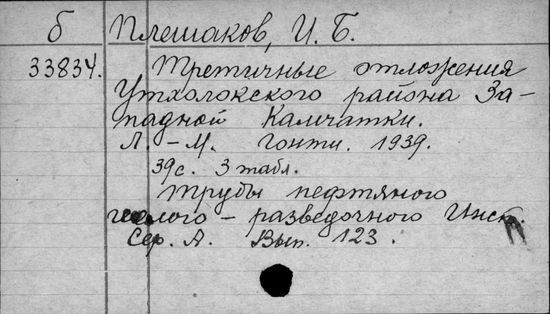 б Плешаков, И. Б.
33834. Третичные отложения
Утхолокского района За-
падной Камчатки.
Л. - М. Гонти. 1939.
39 с. 3 табл.
Трубы нефтяного
геолого - разведочного Инст.
Сер. А. Вып. 123.